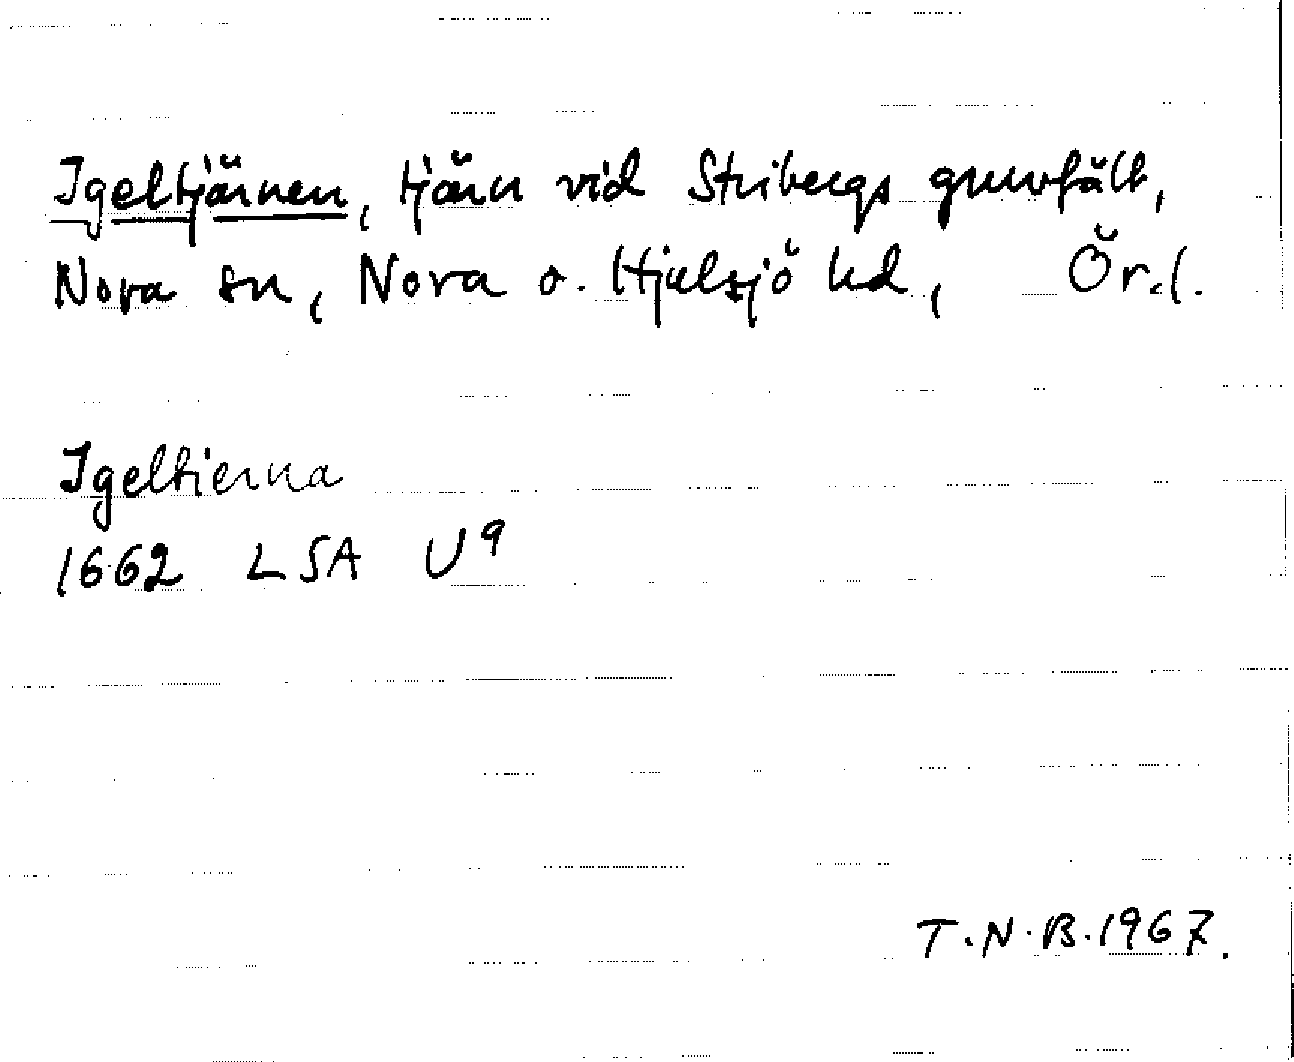 Igeltjärnen, tjärn vid Stribergs gruvfält,
Nova sn, Nora o. Hjulsjö hd, Ör.l.
Igeltierna
1662 LSA U9
T.N.B.1967.